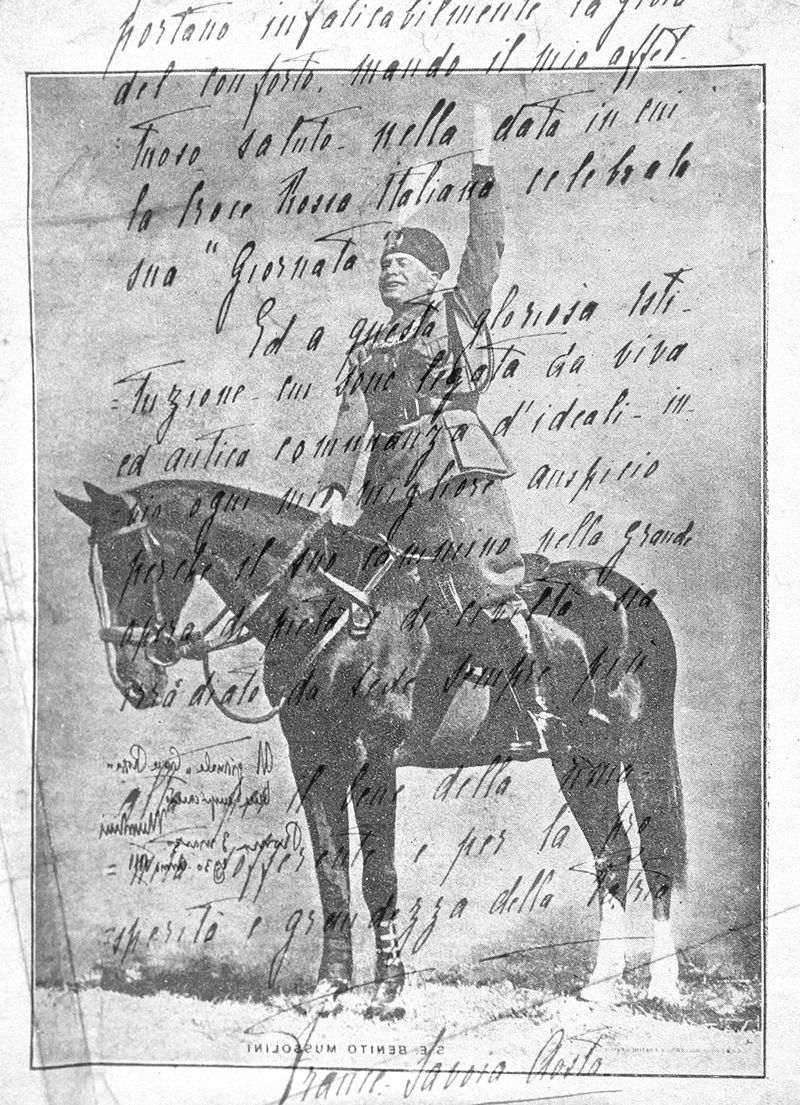 portano infaticabilmente la gioia
del conforto, mando il mio affet-
tuoso saluto- nella data in cui
la Croce Rossa Italiana celebra la
sua "Giornata"
Ed a questa gloriosa isti-
=tuzione- cui sono legata da viva
ed antica comunanza d'ideali- in-
=vio ogni mio migliore auspicio
perchè il suo cammino nella grande
opera di pietà e di civiltà sia
irradiato da luce sempre più
il bene della uma-
sofferente e per la pro
=sperità e grandezza della Patria.
Al giornale "Croce Rossa"
Mussolini
Roma 3 marzo
1930 Anno VIII
S. E. BENITO MUSSOLINI
Savoia Aosta